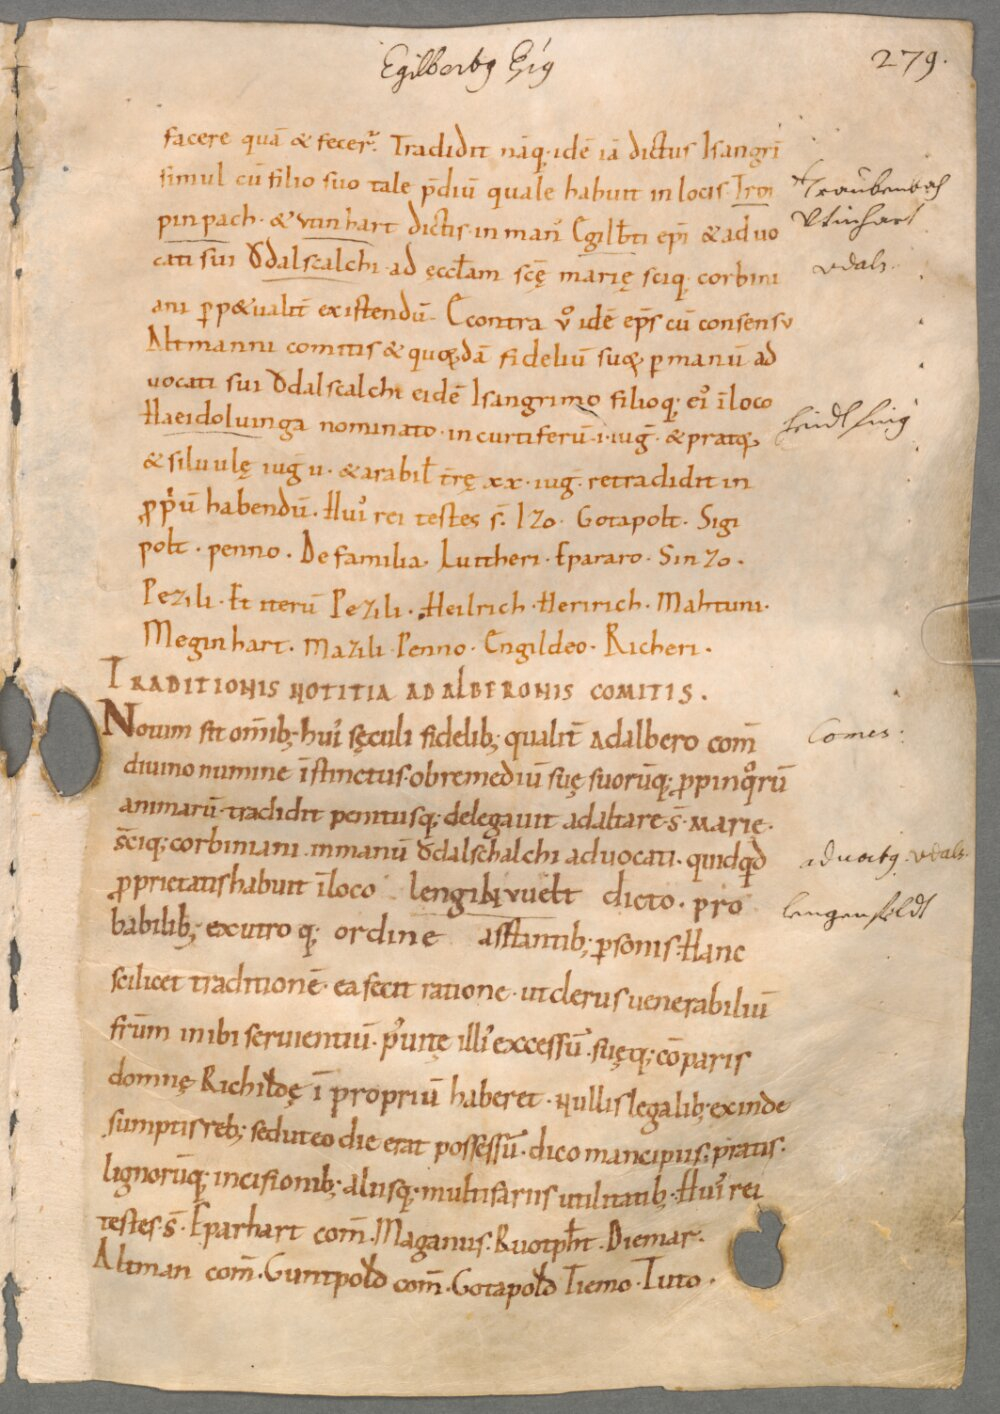 Egilbertꝰ Epꝰ
279.
facere quā & fecerᷣ. Tradidit nāq; idē iā dictus Isangrī
simul cū filio suo tale p̄diū quale habuit in locis Troi
pinpach · & vtinhart dictis · in man᷒ Egilb̄ti ep̄i & aduo
cati sui Ŏdalscalchi · ad ęccl̄am sc̄ę marię sc̄iq; corbini
ani ꝑp&ualit̄ existendū. Econtra v͛o idē ep̄s cū consensv
Altmanni comitis & quorūdā fideliū suorū ꝑ manū ad
uocati sui Ŏdalscalchi eidē Isangrimo filioq; ei᷒ ī loco
Haeidoluinga nominato · in curtiferū · i · iuḡ · & pratorū
& siluulę iuḡ u · & arabil̄ t̄rę xx · iuḡ · retradidit in
ꝓp̍ū habendū · Hui᷒ rei testes s̄ · Izo · Gotapolt · Sigi
polt · penno · De familia · Luttheri · Epararo · Sinzo ·
Pezili · Et iterū Pezili · Heilrich · Heririch · Mahtuni ·
Meginhart · Mazili · Penno · Engildeo · Richeri ·
TRADITIONIS NOTITIA ADALBERONIS COMITIS .
Notum sit om̄ib; hui᷒ sęculi fidelib; qualit̄ Adalbero com̄
diuino numine īstinctus · ob remediū suę suorūq; ꝓpinqͦrū
animarū · tradidit penitusq; delegauit ad altare s̄ · marię ·
sc̄iq; corbiniani · in manū Ŏdalschalchi aduocati · quidqͥd
ꝓprietatis habuit ī loco lengihvuelt dicto · pro
babilib; ex utroq; ordine asstantib; ꝑsonis · Hanc
scilicet traditionē · ea fecit ratione · ut clerus uenerabiliū
frūm inibi seruientiū · p᷒ uitę illi᷒ excessū · suęq; cōparis
domnę Richildę ī propriū haberet · Nullis legalib; exinde
sumptis reb; sed ut eo die erat possessū · dico mancipiis; pratis ·
lignorūq; incisionib; aliisq; multifariis utilitatib; Hui᷒ rei
testes · s̄ · Eparhart com̄ · Maganus · Ruotpḣt · Diemar ·
Altman com̄ · Guntpold com̄ · Gotapold Tiemo · Tuto ·
Traubenbach
Vtinhart
vdals.
heidlfing
Comes.
aduocatꝰ. vdals.
lengenfeldt